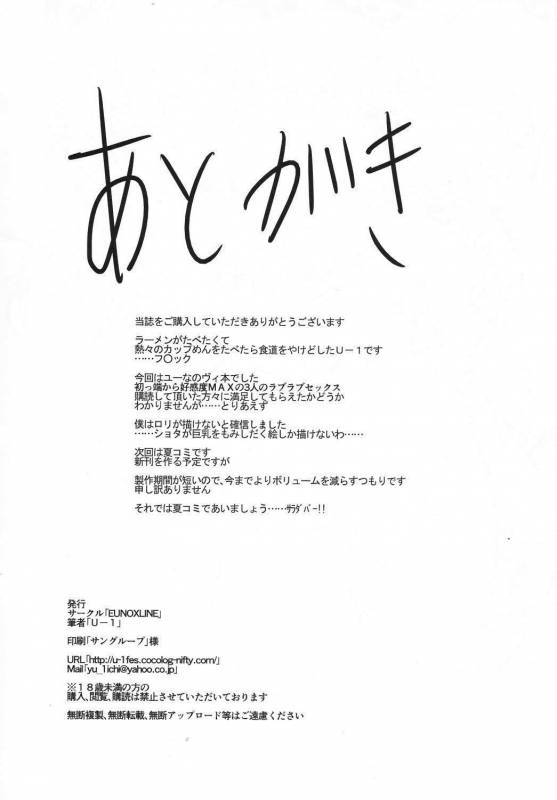 あとがき
当誌をご購入していただきありがとうございます
ラーメンがたべたくて
熱々のカップめんをたべたら食道をやけどしたU－1です
……フ〇ック
今回はユーなのヴィ本でした
初っ端から好感度MAXの3人のラブラブセックス
購読して頂いた方々に満足してもらえたかどうか
わかりませんが……とりあえず
僕はロリが描けないと確信しました
……ショタが巨乳をもみしだく絵しか描けないわ……
次回は夏コミです
新刊を作る予定ですが
製作期間が短いので、今までよりボリュームを減らすつもりです
申し訳ありません
それでは夏コミであいましょう……ｻﾗﾀﾞﾊﾞｰ!!
発行
サークル「EUNOXLINE」
筆者「U－1」
印刷「サングループ」様
URL「http://u-1fes.cocolog-nifty.com/」
Mail「yu_1ichi@yahoo.co.jp」
※18歳未満の方の
購入、閲覧、購読は禁止させていただいております
無断複製、無断転載、無断アップロード等はご遠慮ください